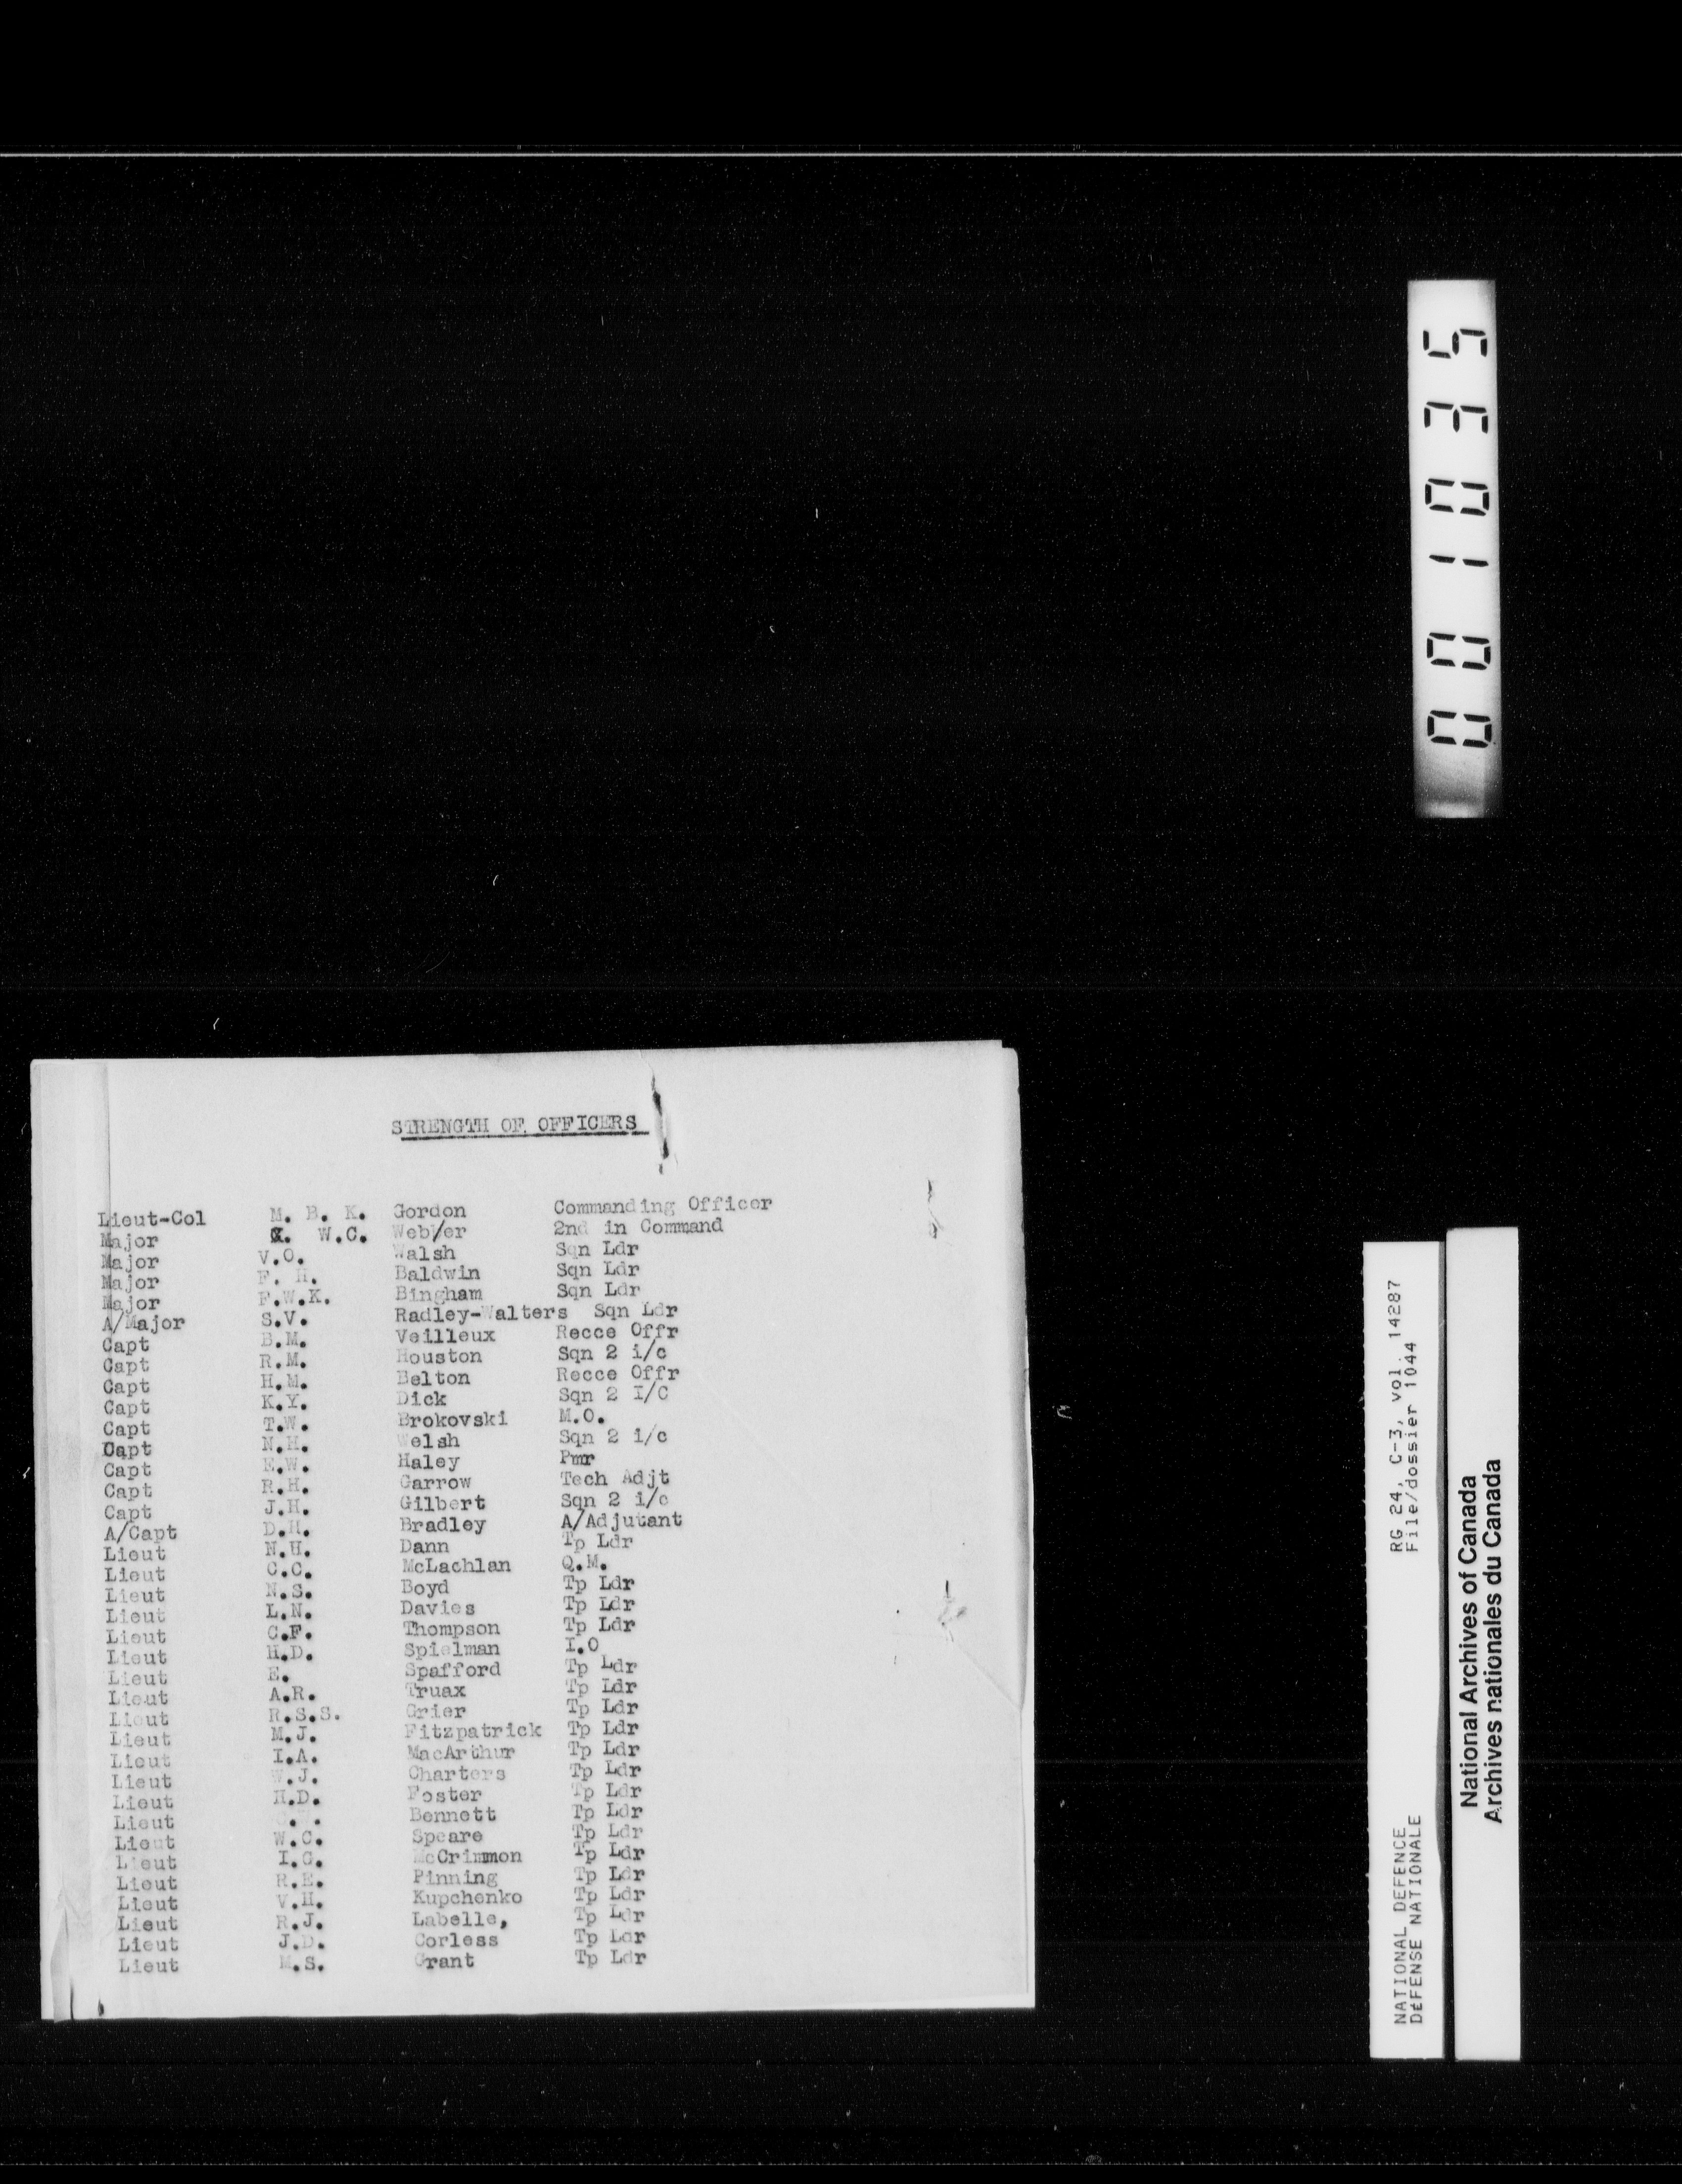 001035
STRENGTH OF OFFICERS
Lieut-Col M. B. K. Gordon Commanding Officer
Major W.C. Webber 2nd in Command
Major V.O. Walsh Sqn Ldr
Major F. H. Baldwin Sqn Ldr
Major F.W.K. Bingham Sqn Ldr
A/Major S.V. Radley-Walters Sqn Ldr
Capt B.M. Veilleux Recce Offr
Capt R.M. Houston Sqn 2 i/c
Capt H.M. Belton Recce Offr
Capt K.Y. Dick Sqn 2 I/C
Capt T.W. Brokovski M.O.
Capt N.H. Welsh Sqn 2 i/c
Capt E.W. Haley Pmr
Capt R.H. Garrow Tech Adjt
Capt J.H. Gilbert Sqn 2 i/c
A/Capt D.H. Bradley A/Adjutant
Lieut N.H. Dann Tp Ldr
Lieut C.C. McLachlan Q.M.
Lieut N.S. Boyd Tp Ldr
Lieut L.N. Davies Tp Ldr
Lieut C.F. Thompson Tp Ldr
Lieut H.D. Spielman I.O
Lieut E. Spafford Tp Ldr
Lieut A.R. Truax Tp Ldr
Lieut R.S.S. Grier Tp Ldr
Lieut M.J. Fitzpatrick Tp Ldr
Lieut I.A. MacArthur Tp Ldr
Lieut W.J. Charters Tp Ldr
Lieut H.D. Foster Tp Ldr
Lieut Bennett Tp Ldr
Lieut W.C. Speare Tp Ldr
Lieut I.G. McCrimmon Tp Ldr
Lieut R.E. Pinning Tp Ldr
Lieut V.H. Kupchenko Tp Ldr
Lieut R.J. Labelle, Tp Ldr
Lieut J.D. Corless Tp Ldr
Lieut M.S. Grant Tp Ldr
NATIONAL DEFENCE RG 24, C-3, vol. 14287
DÉFENSE NATIONALE File/dossier 1044
National Archives of Canada
Archives nationales du Canada